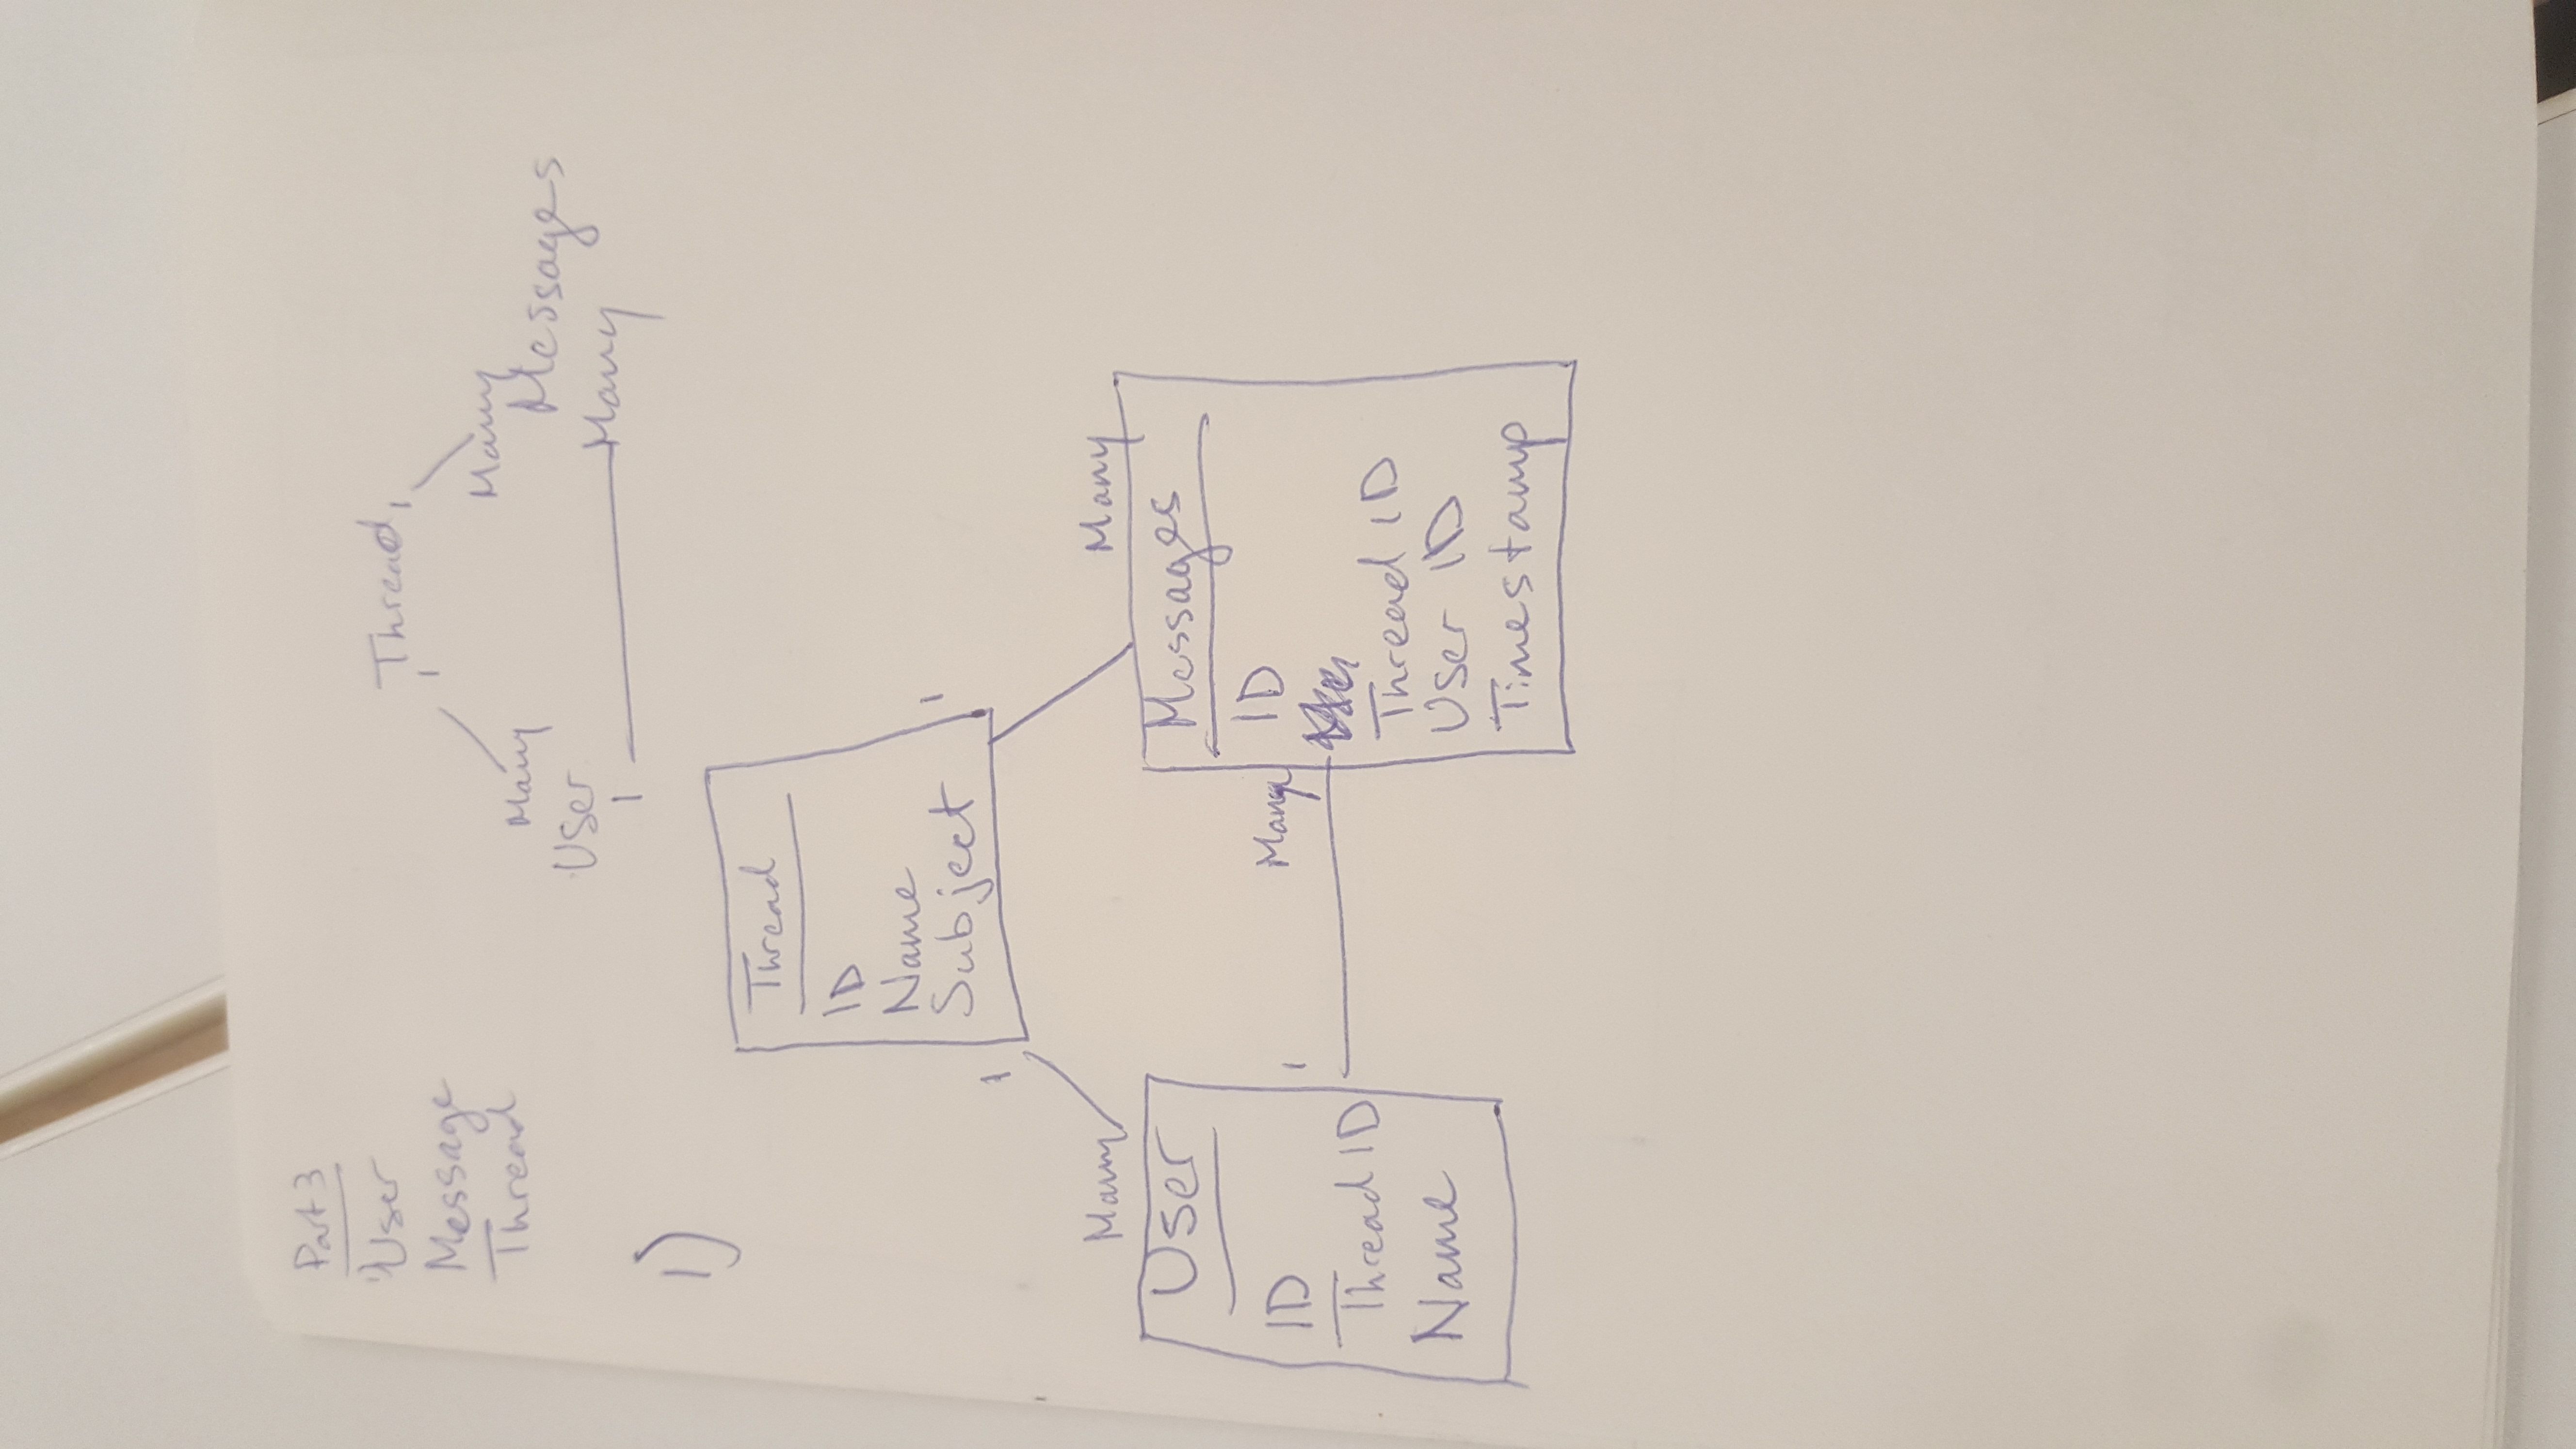 Part 3
1) User
Message
Thread
Thread 1
1
Many
Many
User
Messages
1
Many
1)
Thread
ID
Name
Subject
1
1
Many
Many
User
ID
Thread ID
Name
1
Many
Messages
ID
Thread ID
User ID
Timestamp